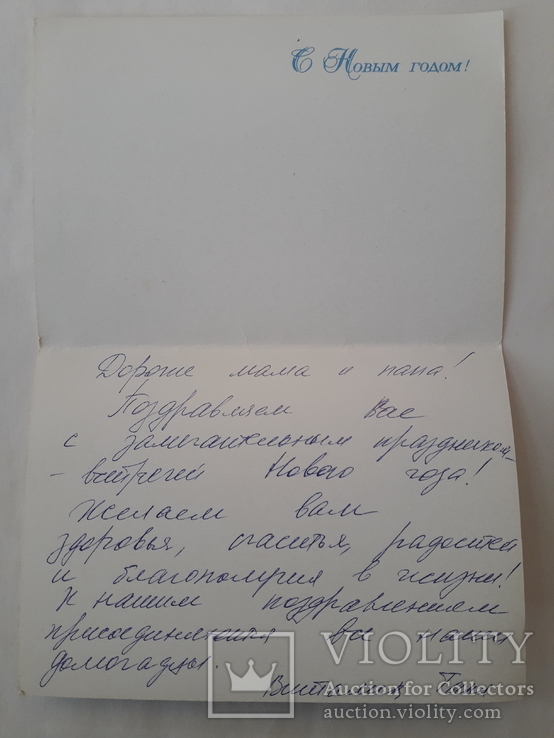 С Новым годом!
Дорогие мама и папа!
Поздравляем вас
с замечательным праздником-
- встречей Нового года!
Желаем вам
здоровья, счастья, радостей
и благополучия в жизни!
К нашим поздравлениям
присоединяются все наши
домочадцы.
VIOLITY
Auction for Collectors
auction.violity.com